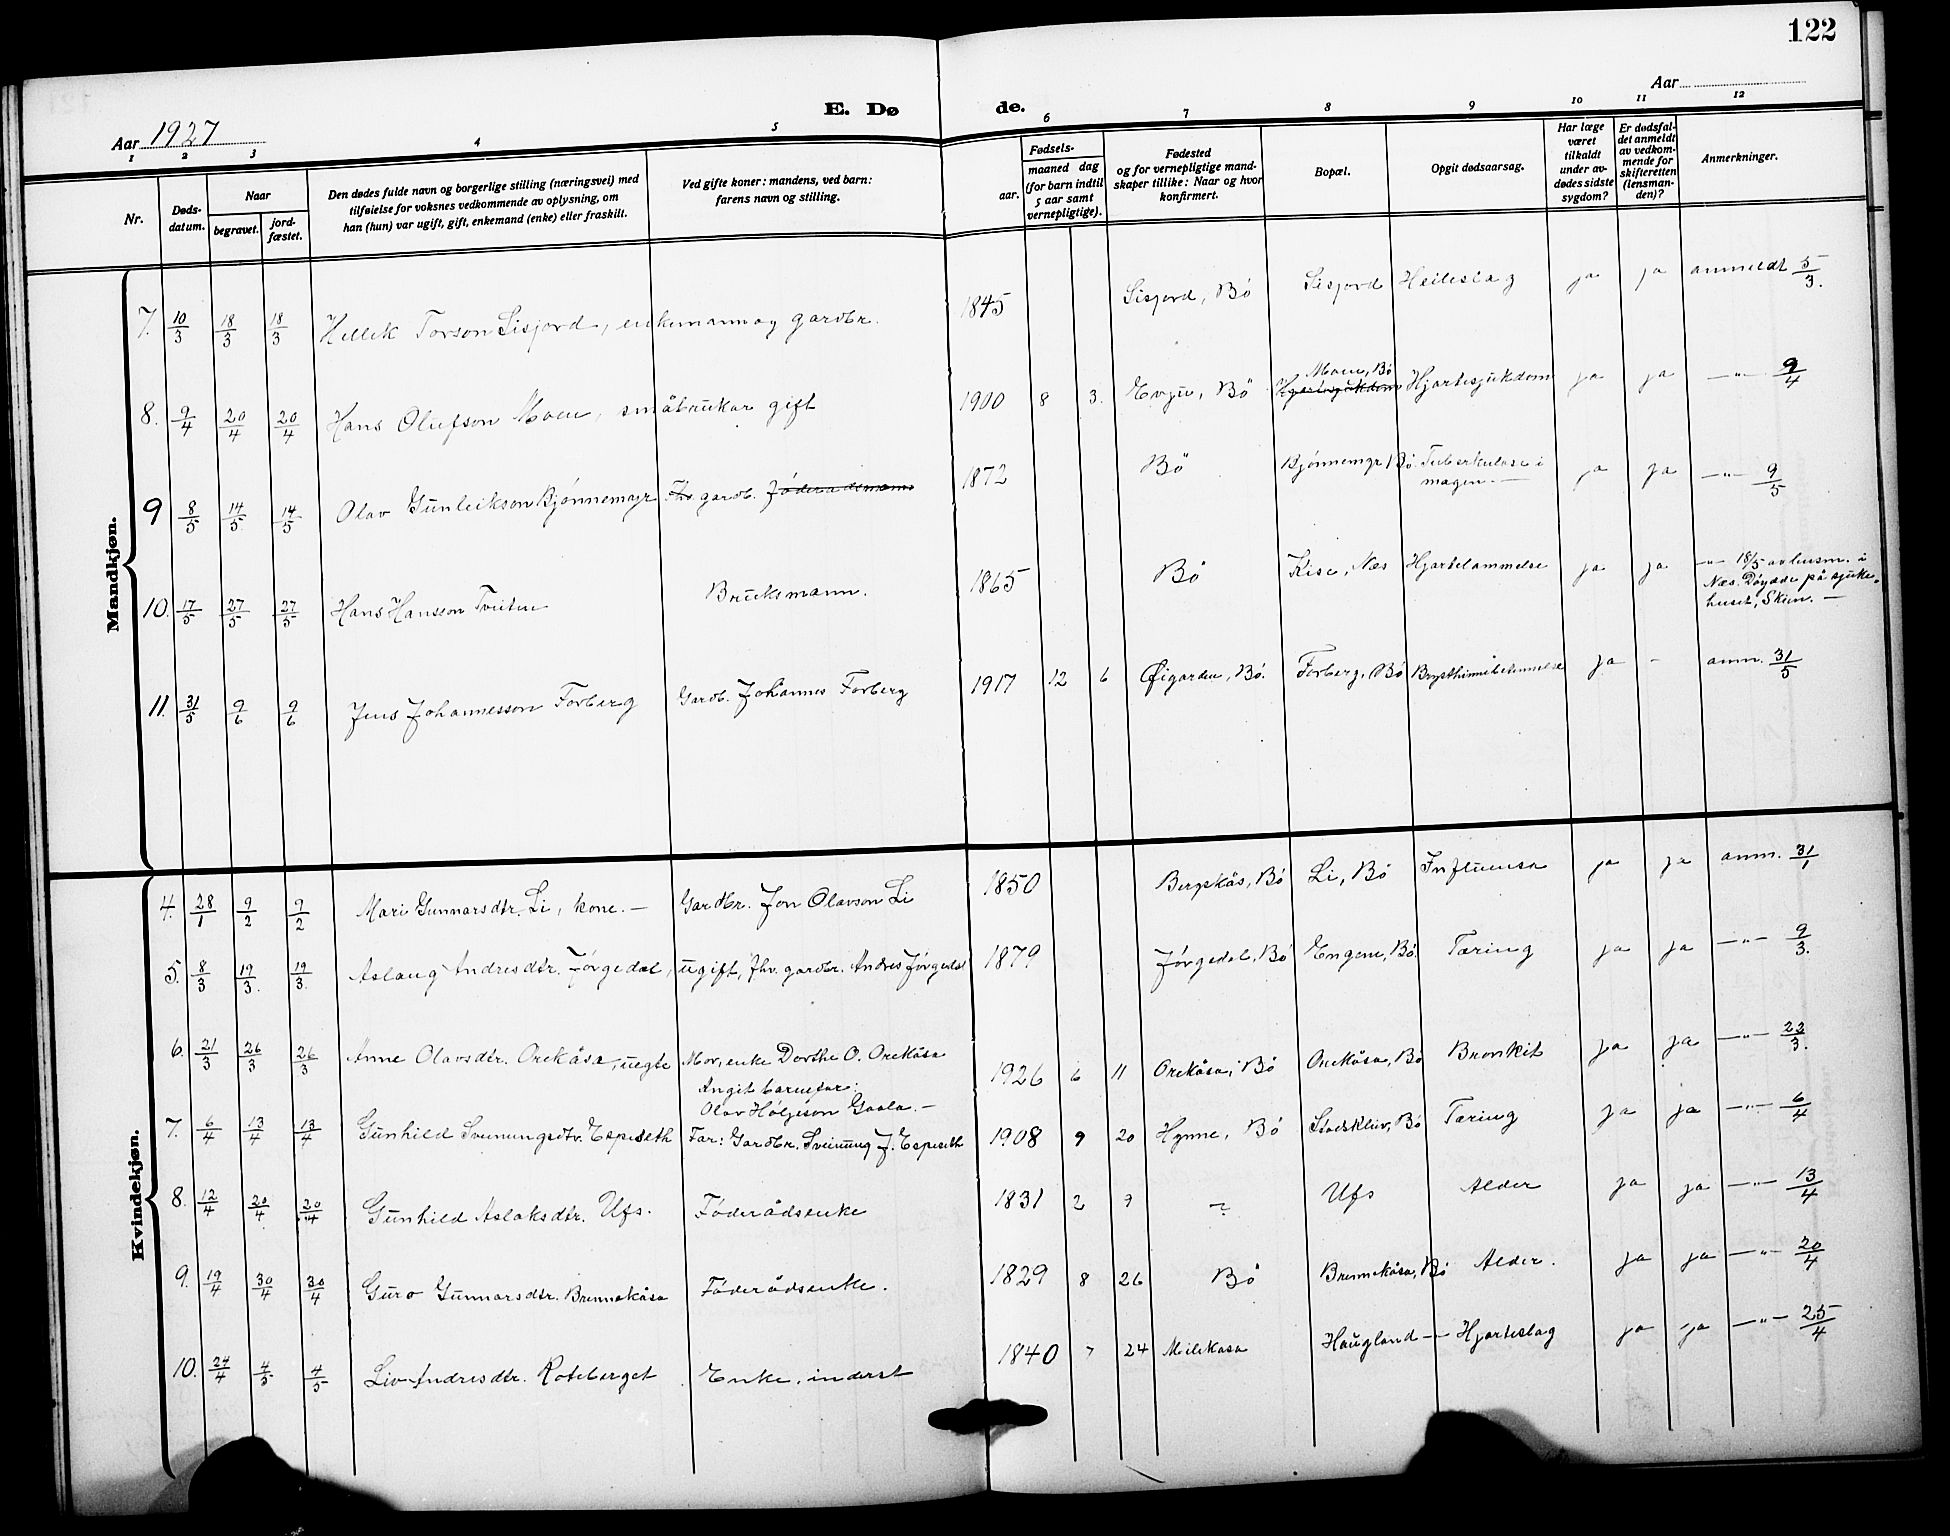 122
E. Døde.
Aar 1927
Aar
1 2 3 4 5 6 7 8 9 10 11 12
Nr.
Døds-
datum.
Naar
begravet.
jord-
fæstet.
Den dødes fulde navn og borgerlige stilling (næringsvei) med
tilføielse for voksnes vedkommende av oplysning, om
han (hun) var ugift, gift, enkemand (enke) eller fraskilt.
Ved gifte koner: mandens, ved barn:
farens navn og stilling.
Fødsels-
aar.
maaned dag
(for barn indtil
5 aar samt
vernepligtige).
Fødested
og for vernepligtige mand-
skaper tillike: Naar og hvor
konfirmert.
Bopæl.
Opgit dødsaarsag.
Har læge
været
tilkaldt
under av-
dødes sidste
sygdom?
Er dødsfal-
det anmeldt
av vedkom-
mende for
skifteretten
(lensman-
den)?
Anmerkninger.
Mandkjøn.
7. 10/3 18/3 18/3 Hellek Torson Sisjord, enkemann og gardbr. 1845 Sisjord, Bö Sisjord Heileslag ja ja anmeldt 5/3.
8. 9/4 20/4 20/4 Hans Olufson Moen, småbrukar gift 1900 8 3. Evju, Bö Hjartesjukdom Moen, Bö Hjartesjukdom ja ja —"— 9/4
9 8/5 14/5 14/5 Olav Gunleikson Bjönnemyr Fhv. gardb. Föderådsmann 1872 Bö Bjönnemyr Bö. Tuberkulose i
magen. — ja ja —"— 9/5
10. 17/5 27/5 27/5 Hans Hansson Tveiten Bruksmann. 1865 Bö Kise, Næs Hjartelammelse ja ja —"— 18/5 av lensm. i
Næs. Döyde på sjuke-
huset, Skien. —
11. 31/5 9/6 9/6 Jens Johannesson Forberg Gardb. Johannes Forberg 1917 12 6 Øigarden, Bö. Forberg, Bö Brysthinnebetennelse ja - anm. 31/5
Kvindekjøn.
4. 28/1 9/2 9/2 Mari Gunnarsdtr. Li, kone. — Gardbr. Jon Olavson Li 1850 Bergskås, Bö Li, Bö Influensa ja ja anm. 31/1
5. 8/3 19/3. 19/3. Aslaug Andresdtr. Jörgedal, ugift, fhv. gardbr. Andres Jörgedal 1879 Jörgedal, Bö Engene, Bö. Tæring ja ja —"— 9/3.
6. 21/3 26/3 26/3 Anne Olavsdtr. Orekåsa, uegte Mor, enke Dorthe O. Orekåsa
Angit barnefar:
Olav Höljeson Gaala. — 1926 6 11 Orekåsa, Bö Orekåsa, Bö Bronkit ja ja —"— 23/3.
7. 6/4 13/4 13/4 Gunhild Sveinungsdtr. Espeseth Far: Gardbr. Sveinung J. Espeseth 1908 9 20 Hynne, Bö Stadskleiv, Bö Tæring ja ja —"— 6/4
8. 12/4 20/4 20/4 Gunhild Aslaksdtr. Ufs. Föderådsenke 1831 2 7 ? Ufs Alder ja ja —"— 13/4
9. 19/4 30/4 30/4 Guro Gunnarsdtr. Brennekåsa Föderådsenke. 1829 8 26 Bö Brennekåsa, Bö Alder. ja ja —"— 20/4
10. 24/4 4/5 4/5 Liv Andresdtr. Roteberget Enke. inderst 1840 7 24 Meilekasa Haugland —"— Hjarteslag ja ja —"— 25/4